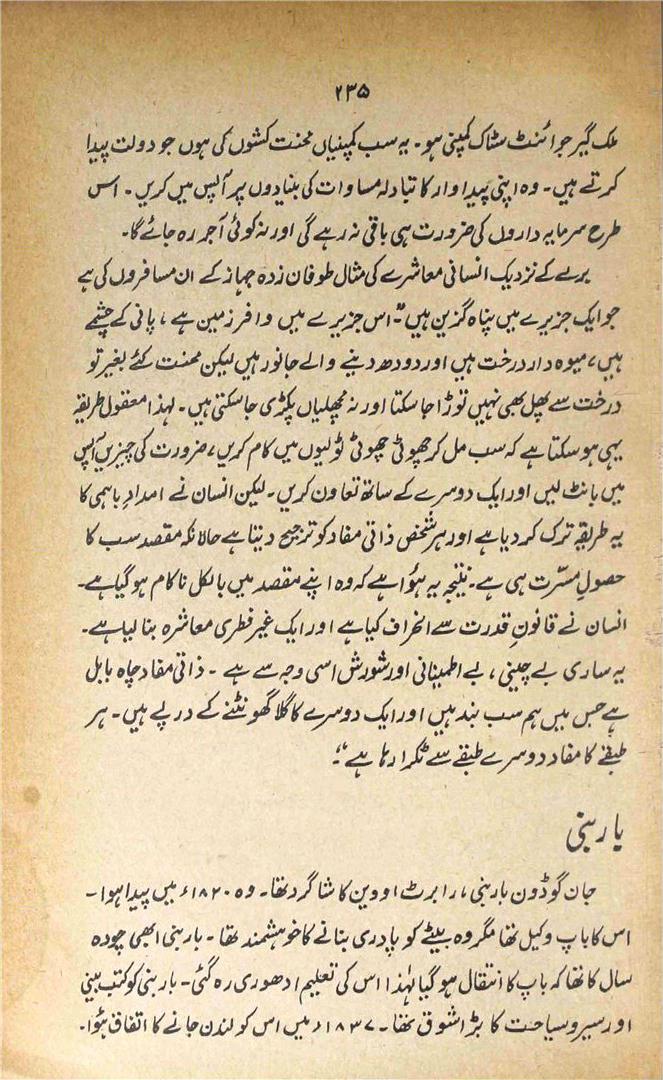 ۲۳۵
ملک گیر جوائنٹ سٹاک کمپنی ہو۔ یہ سب کمپنیاں محنت کشوں کی ہوں جو دولت پیدا
کرتے ہیں۔ وہ اپنی پیداوار کا تبادلہ مساوات کی بنیادوں پر آپس میں کریں۔ اس
طرح سرمایہ داروں کی ضرورت ہی باقی نہ رہے گی اور نہ کوئی آجر رہ جائے گا۔
برے کے نزدیک انسانی معاشرے کی مثال طوفان زدہ جہاز کے ان مسافروں کی ہے
جو ایک جزیرے میں پناہ گزین ہیں۔ "اس جزیرے میں وافر زمین ہے، پانی کے چشمے
ہیں، میوہ دار درخت ہیں اور دودھ دینے والے جانور ہیں لیکن محنت کئے بغیر تو
درخت سے پھل بھی نہیں توڑا جا سکتا اور نہ مچھلیاں پکڑی جا سکتی ہیں۔ لہذا معقول طریقہ
یہی ہو سکتا ہے کہ سب مل کر چھوٹی چھوٹی ٹولیوں میں کام کریں، ضرورت کی چیزیں آپس
میں بانٹ لیں اور ایک دوسرے کے ساتھ تعاون کریں۔ لیکن انسان نے امدادِ باہمی کا
یہ طریقہ ترک کر دیا ہے اور ہر شخص ذاتی مفاد کو ترجیح دیتا ہے حالانکہ مقصد سب کا
حصولِ مسرّت ہی ہے۔ نتیجہ یہ ہؤا ہے کہ وہ اپنے مقصد میں بالکل ناکام ہو گیا ہے۔
انسان نے قانونِ قدرت سے انحراف کیا ہے اور ایک غیر فطری معاشرہ بنا لیا ہے۔
یہ ساری بے چینی، بے اطمینانی اور شورش اسی وجہ سے ہے۔ ذاتی مفاد چاہ بابل
ہے جس میں ہم سب بند ہیں اور ایک دوسرے کا گلا گھونٹنے کے درپے ہیں۔ ہر
طبقے کا مفاد دوسرے طبقے سے ٹکرا رہا ہے"۔
یاربنی
جان گوڈون باربنی، رابرٹ اووین کا شاگرد تھا۔ وہ ۱۸۲۰ء میں پیدا ہوا۔
اس کا باپ وکیل تھا مگر وہ بیٹے کو پادری بنانے کا خواہشمند تھا۔ باربنی ابھی چودہ
سال کا تھا کہ باپ کا انتقال ہو گیا لہٰذا اس کی تعلیم ادھوری رہ گئی۔ باربنی کو کتب بینی
اور سیر و سیاحت کا بڑا شوق تھا۔ ۱۸۳۷ء میں اس کو لندن جانے کا اتفاق ہؤا۔